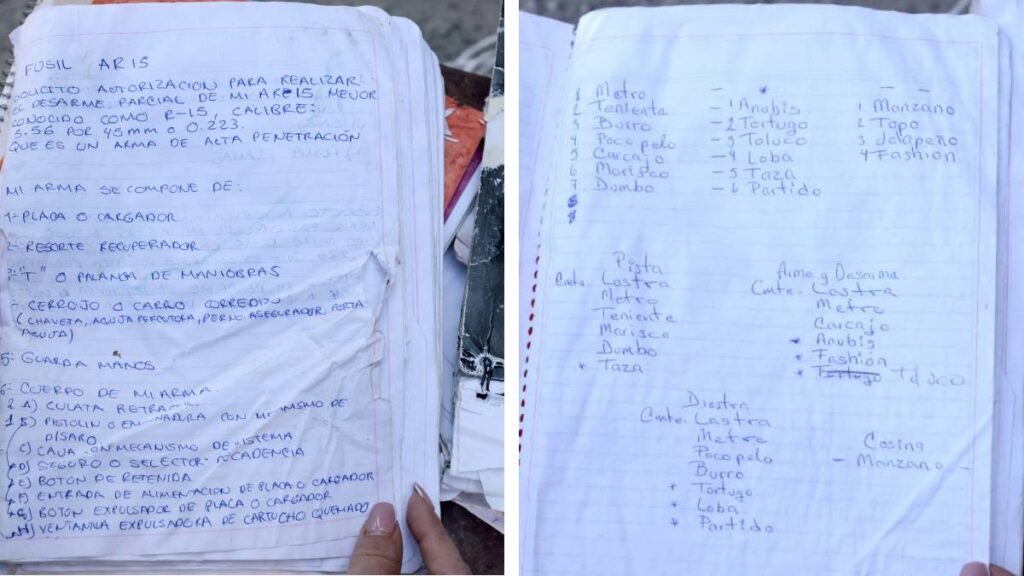 FUSIL AR15
SOLICITO AUTORIZACION PARA REALIZAR
EL DESARME PARCIAL DE MI AR15, MEJOR
CONOCIDO COMO R-15, CALIBRE:
5.56 POR 45mm O 0.223.
QUE ES UN ARMA DE ALTA PENETRACIÓN
MI ARMA SE COMPONE DE:
1- PLACA O CARGADOR
2- RESORTE RECUPERADOR
"T" O PALANCA DE MANIOBRAS
CERROJO O CARRO CORREDIZO
(CHAVETA, AGUJA PERCUTORA, PERNO ASEGURADOR, PORTA
AGUJA)
5- GUARDA MANOS
6- CUERPO DE MI ARMA
A) CULATA RETRA
B) PISTOLIN O EMPUÑADURA CON MECANISMO DE
DISARO
C) CAJA CON MECANISMO DE SISTEMA
D) SEGURO O SELECTOR DE CADENCIA
E) BOTON DE RETENIDA
F) ENTRADA DE ALIMENTACION DE PLACA O CARGADOR
G) BOTON EXPULSADOR DE PLACA O CARGADOR
H) VENTANILLA EXPULSADORA DE CARTUCHO QUEMADO
1 Metro - *
2 Teniente - 1 Anubis 1 Manzano
3 Burro - 2 Tortugo 2 Topo
4 Pocopelo - 3 Toluco 3 Jalapeño
5 Carcajo - 4 Loba 4 Fashion
6 Marisco - 5 Taza
7 Dumbo - 6 Partido
8
Pista
Cmte. Lastra
Metro
Teniente
Marisco
Dumbo
* Taza
Arme y Desarme
Cmte. Lastra
Metro
Carcajo
* Anubis
* Fashion
* Tortugo Toluco
Diestra
Cmte. Lastra
Metro
Pocopelo
Burro
* Tortugo
* Loba
* Partido
Cosina
- Manzano -